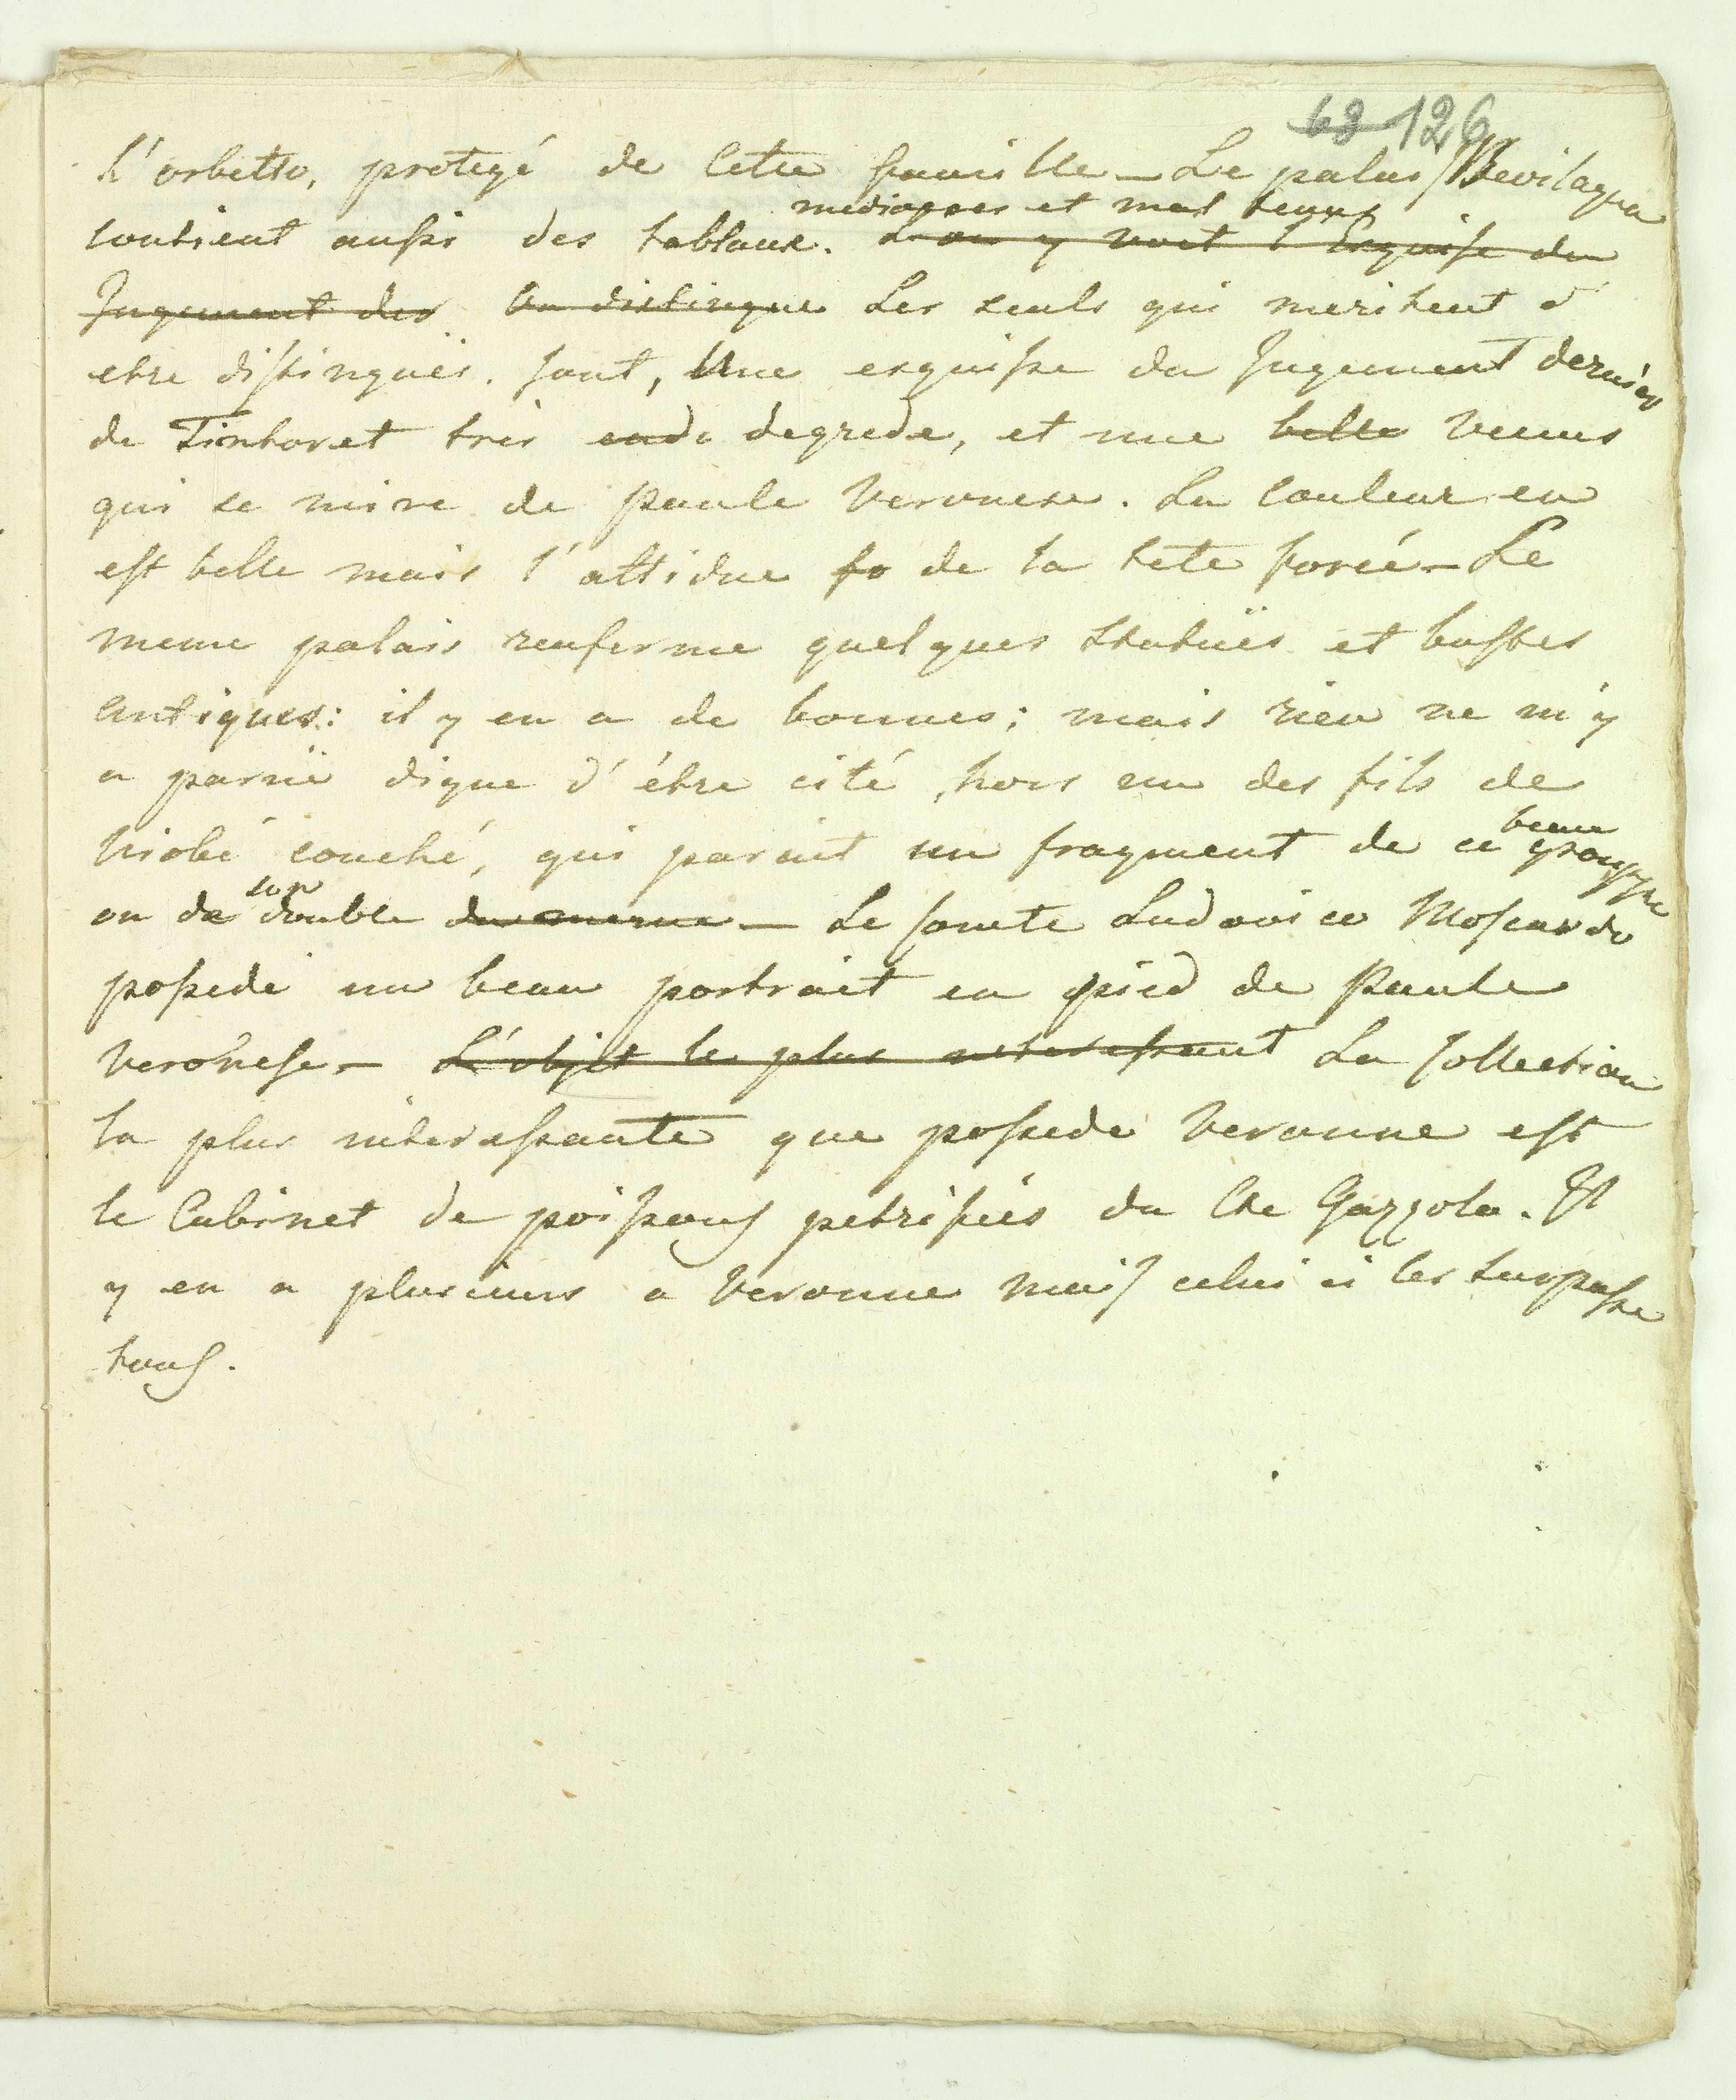 63 126
L'orbetto, protegé de cette famille – Le palais Bevilaqua
mediocres et mal tenus
contient aussi des tableaux. L'on y voit l'Esquisse du
Jugement der On distingue Les seuls qui meritent d'
etre distingués. sont, Une esquisse du Jugement dernier
de Tintoret très ende degredé, et une belle Venus
qui se mire de Paule Veronese. La couleur en
est belle mais l'attidue fo de la tete forcé – Le
meme palais renferme quelques statuës et bustes
antiques: il y en a de bonnes; mais rien ne m'y
a paruë digne d'étre cité, hors un des fils de
beau
Niobé couché, qui parait un fragment de ce grouppe
son
ou de double du meme – Le Comte Ludovico Moscardo
possede un beau portrait en pied de Paule
Veronese – L'objet le plus interessant La Collection
la plus interessante que possede Veronne est
le Cabinet de poissons petrifiés du Cte Gazzola. Il
y en a plusieurs a Veronne mais celui ci les surpasse
tous.